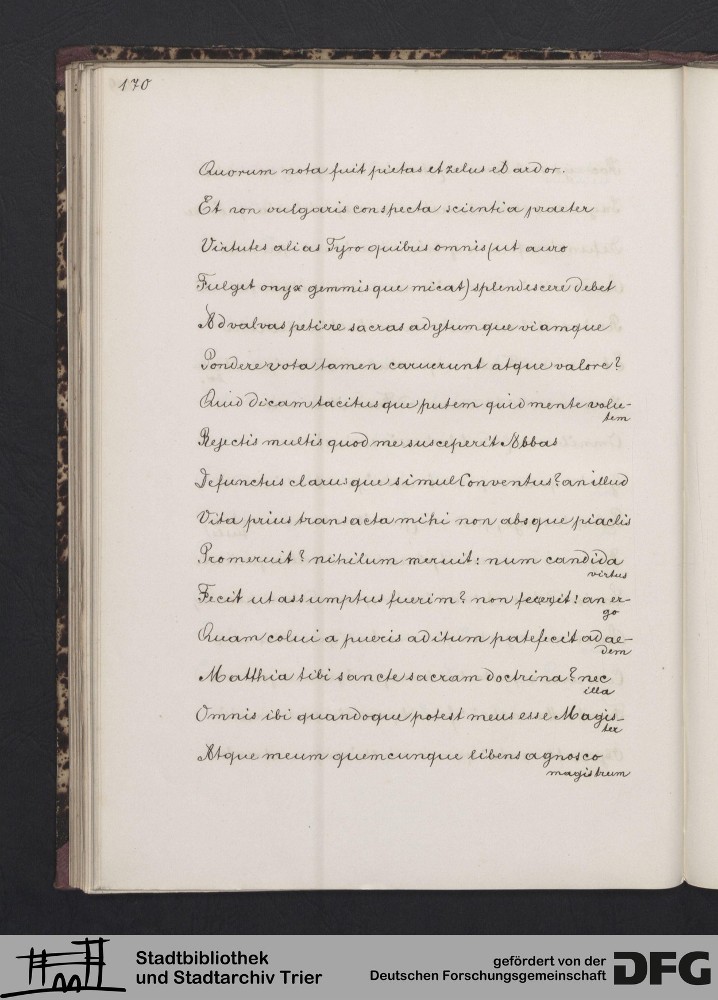 170
Quorum nota fuit pietas et zelus et ardor.
Et non vulgaris conspecta scientia praeter
Virtutes alias Tyro quibus omnis (ut auro
Fulget onyx gemmisque micat) splendescere debet
Ad valvas petiere sacras adytumque viamque
Pondere vota tamen caruerunt atque valore?
Quid dicam tacitusque putem quid mente volu-
tem
Rejectis multis quod me susceperit Abbas
Defunctus clarusque simul Conventus? an illud
Vita prius transacta mihi non absque piaclis
Promeruit? nihilum meruit: num candida
virtus
Fecit ut assumptus fuerim? non fecerit: an er-
go
Quam colui a pueris aditum patefecit ad ae-
dem
Matthia tibi sancte sacram doctrina? nec
illa
Omnis ibi quandoque potest meus esse Magis-
ter
Atque meum quemcunque libens agnosco
magistrum
Stadtbibliothek
und Stadtarchiv Trier
gefördert von der
Deutschen Forschungsgemeinschaft
DFG